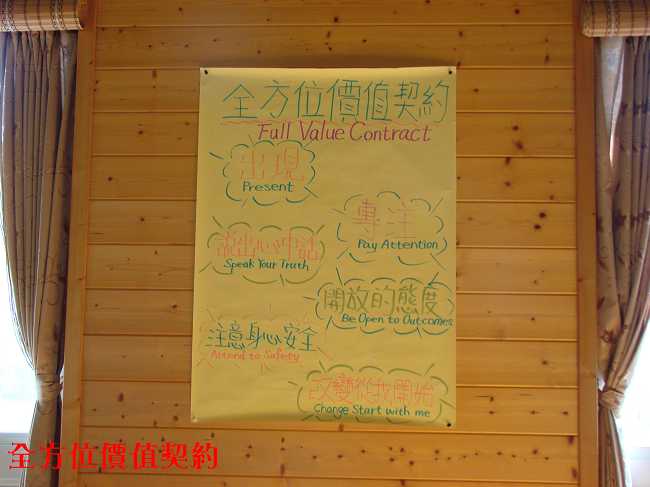 全方位價值契約
Full Value Contract
出現
Present
專注
Pay Attention
說出心中話
Speak Your Truth
開放的態度
Be Open to Outcomes
注意身心安全
Attend to Safety
改變從我開始
Change Start with me
全方位價值契約